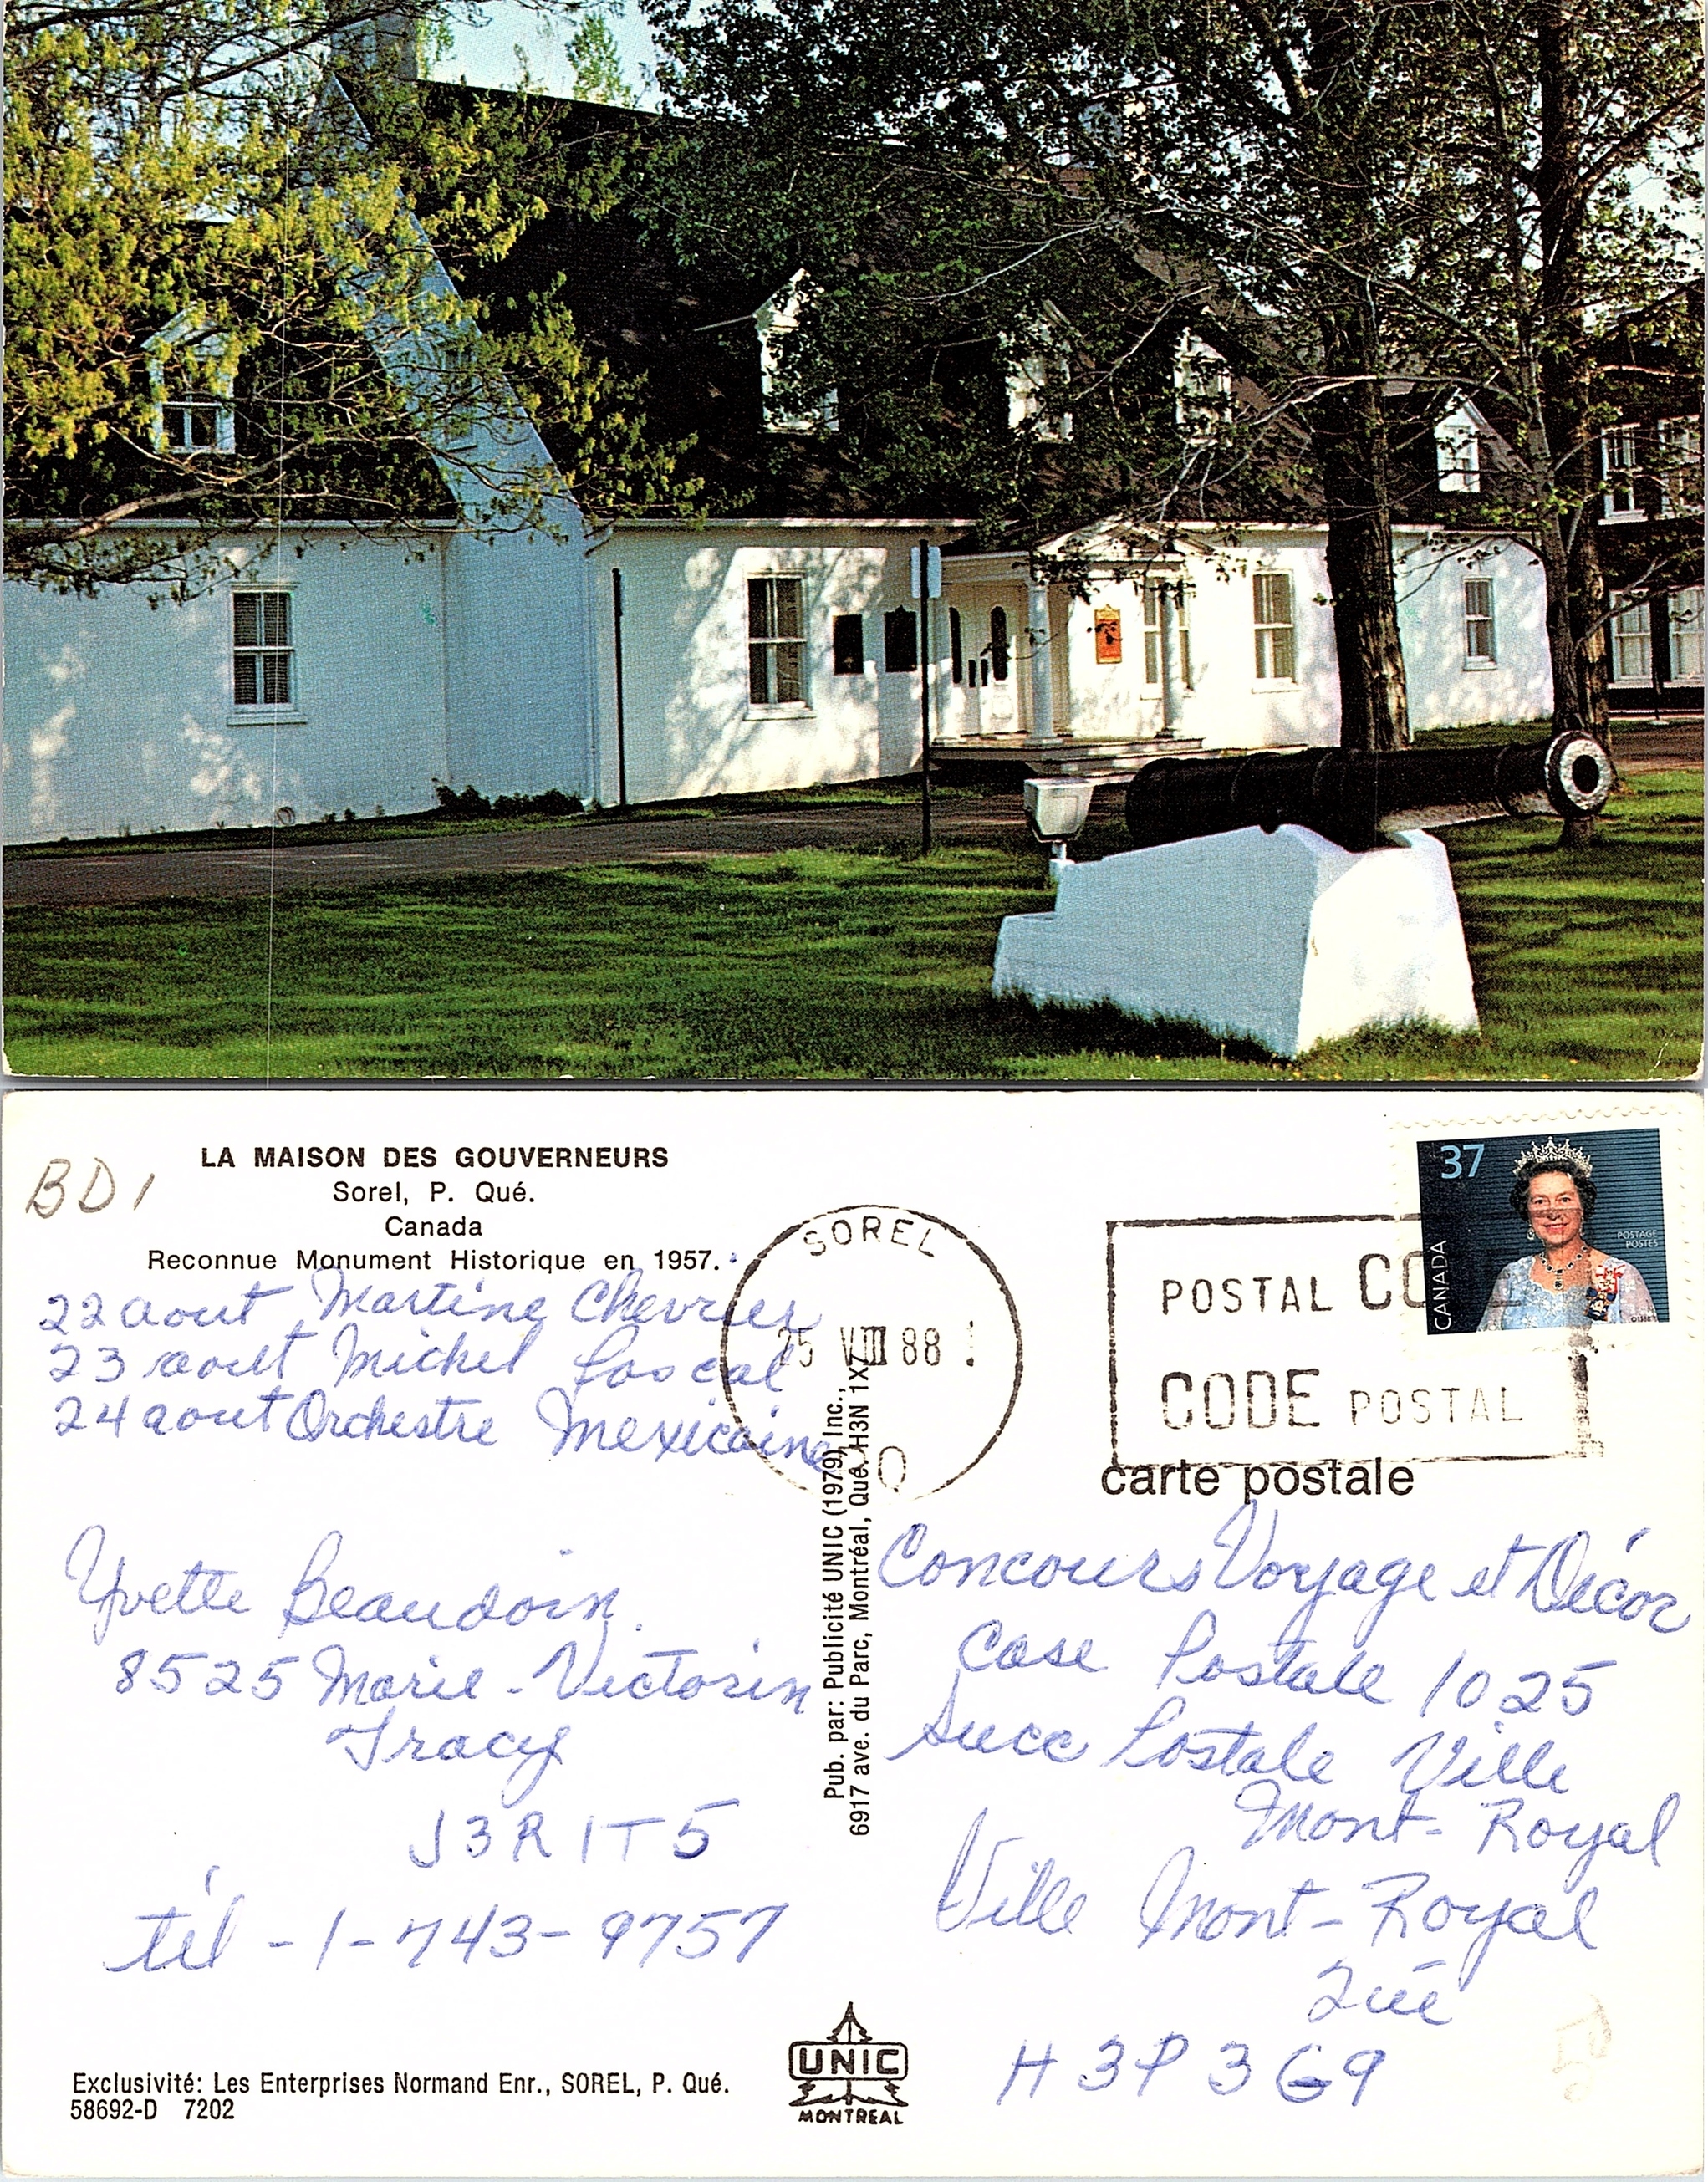 BD1
LA MAISON DES GOUVERNEURS
Sorel, P. Qué.
Canada
Reconnue Monument Historique en 1957.
22 aout Martine Chevrier
23 aout Michel Pascal
24 aout Orchestre Mexicaine
Yvette Beaudoin
8525 Marie-Victorin
Tracy
J3R 1T5
tél-1-743-9757
Exclusivité: Les Enterprises Normand Enr., SOREL, P. Qué.
58692-D 7202
SOREL
25 VIII 88
Pub. par: Publicité UNIC (1979) Inc.,
6917 ave. du Parc, Montréal, Qué. H3N 1X7
UNIC
MONTREAL
POSTAL CO
CODE POSTAL
37
CANADA
POSTAGE
POSTES
carte postale
Concours Voyage et Décor
Case Postale 1025
Succ Postale Ville
Mont-Royal
Ville Mont-Royal
Qué
H3P 3G9